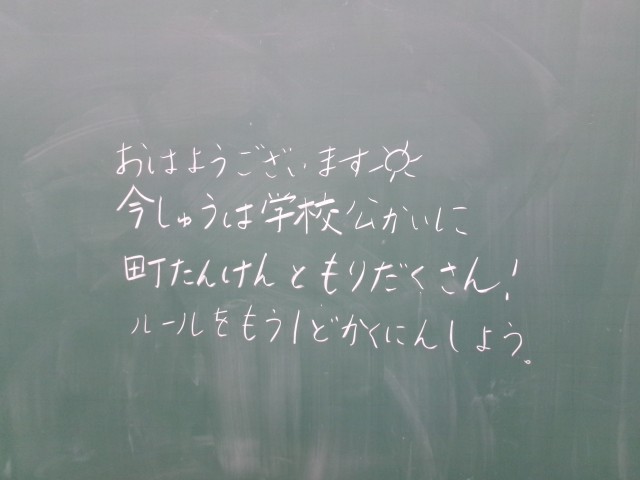 おはようございます☀
今しゅうは学校公かいに
町たんけんともりだくさん!
ルールをもう1どかくにんしょう。